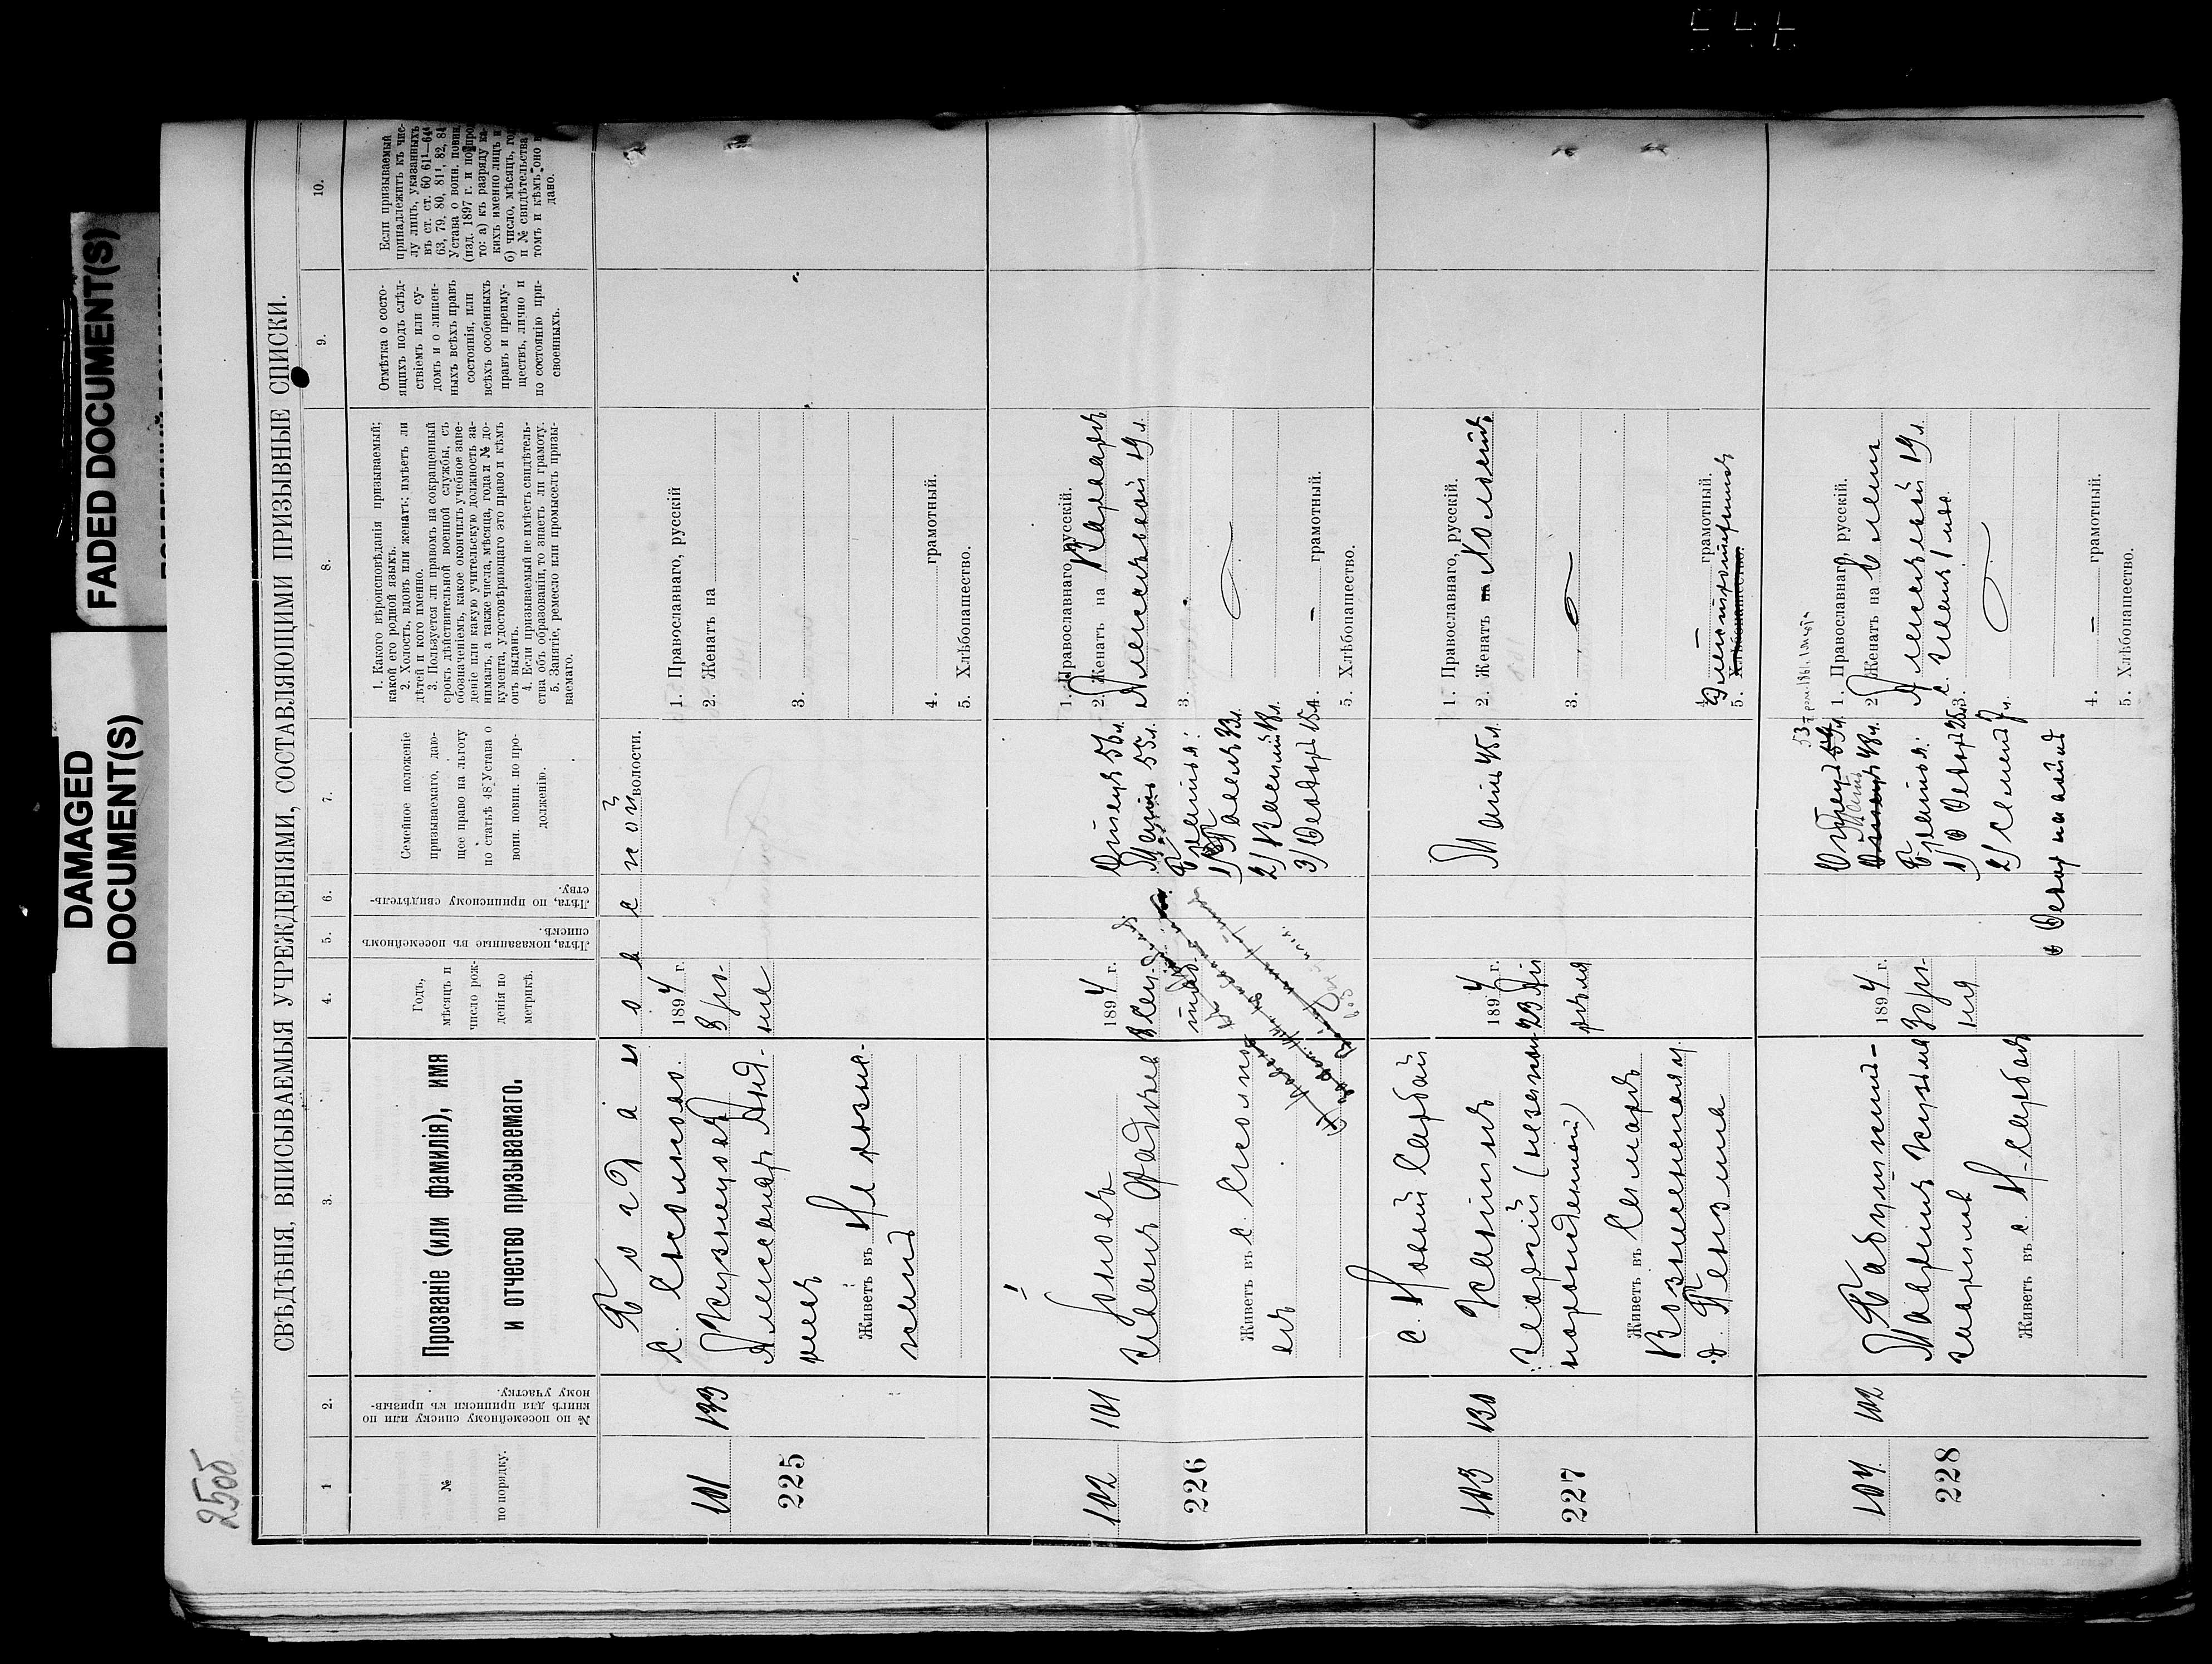 FADED DOCUMENT(S)
DAMAGED
DOCUMENT(S)
250б
СВѢДѢНІЯ, ВПИСЫВАЕМЫЯ УЧРЕЖДЕНІЯМИ, СОСТАВЛЯЮЩИМИ ПРИЗЫВНЫЕ СПИСКИ.
1
2.
3.
4.
5.
6.
7.
8.
9.
10.
№
по порядку.
№ по посемейному списку или по
книгѣ для приписки къ призыв-
ному участку.
Прозваніе (или фамилія), имя
и отчество призываемаго.
Годъ,
мѣсяцъ и
число рож-
денія по
метрикѣ.
Лѣта, показанные въ посемейномъ
спискѣ.
Лѣта, по приписному свидѣтель-
ству.
Семейное положеніе
призываемаго, даю-
щее право на льготу
по статьѣ 48 Устава о
воин. повин. по про-
долженію.
1. Какого вѣроисповѣданія призываемый;
какой его родной языкъ.
2. Холостъ, вдовъ или женатъ; имѣетъ ли
дѣтей и кого именно.
3. Пользуется ли правомъ на сокращенный
срокъ дѣйствительной военной службы, съ
обозначеніемъ, какое окончилъ учебное заве-
деніе или какую учительскую должность за-
нималъ, а также числа, мѣсяца, года и № до-
кумента, удостовѣряющаго это право и кѣмъ
онъ выданъ.
4. Если призываемый не имѣетъ свидѣтель-
ства объ образованіи, то знаетъ ли грамоту.
5. Занятіе, ремесло или промыселъ призы-
ваемаго.
Отмѣтка о состо-
ящихъ подъ слѣд-
ствіемъ или су-
домъ и о лишен-
ныхъ всѣхъ правъ
состоянія, или
всѣхъ особенныхъ
правъ и преиму-
ществъ, лично и
по состоянію при-
своенныхъ.
Если призываемый
принадлежитъ къ чис-
лу лицъ, указанныхъ
въ ст. ст. 60 61¹—64⁴
63, 79, 80, 81¹, 82, 84
Устава о воин. повин.
(изд. 1897 г. и по прод
то: а) къ разряду ка-
кихъ именно лицъ и
б) число, мѣсяцъ, год
и № свидѣтельства
томъ и кѣмъ оно
дано.
Богдановской волости.
с. Сколково.
101
133
225
Кузнецовъ
Александръ Анд-
реевъ
Живетъ въ
1894 г.
3 Ію-
ня
1. Православнаго, русскій
2. Женатъ на
3.
4. грамотный.
5. Хлѣбопашество.
102
101
226
Іоновъ
Иванъ Фадѣевъ
Живетъ въ с. Сколко-
вѣ
1894 г.
Отецъ 56 л.
Мать 55 л.
Братья:
1) Павелъ 33 л.
2) Василій 18 л.
3) Ѳедоръ 15 л.
1. Православнаго, русскій.
2. Женатъ на Варварѣ
Алексѣевой 19 л.
3.
4. — грамотный.
5. Хлѣбопашество.
с. Новый Сарбай
103
130
227
Калининъ
Георгій (незаконно-
рожденный)
Живетъ въ Самарѣ
Вознесенская ул.
д. Пензина
1894 г.
23 Ап-
рѣля
Мать 45 л.
1. Православнаго, русскій.
2. Женатъ на Холостъ
3.
4. грамотный.
5. Хлѣбопашество.
104
102
228
Бабушкинъ
Живетъ въ с. Н-Сарбаѣ
1894 г.
3 Ію-
ня
Отецъ
48 л.
Братья:
1) Ѳедоръ 25 л.
2) Семенъ 7 л.
Ѳедоръ на войнѣ
1. Православнаго, русскій.
2. Женатъ на Еленѣ
Алексѣевой 19 л.
3.
4. — грамотный.
5. Хлѣбопашество.